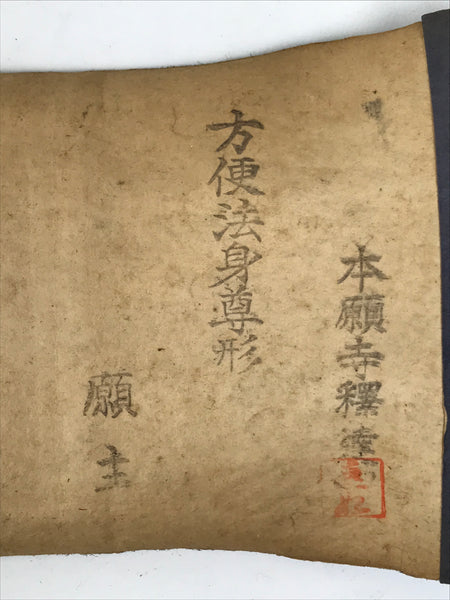 本願寺釋達如
方便法身尊形
願主